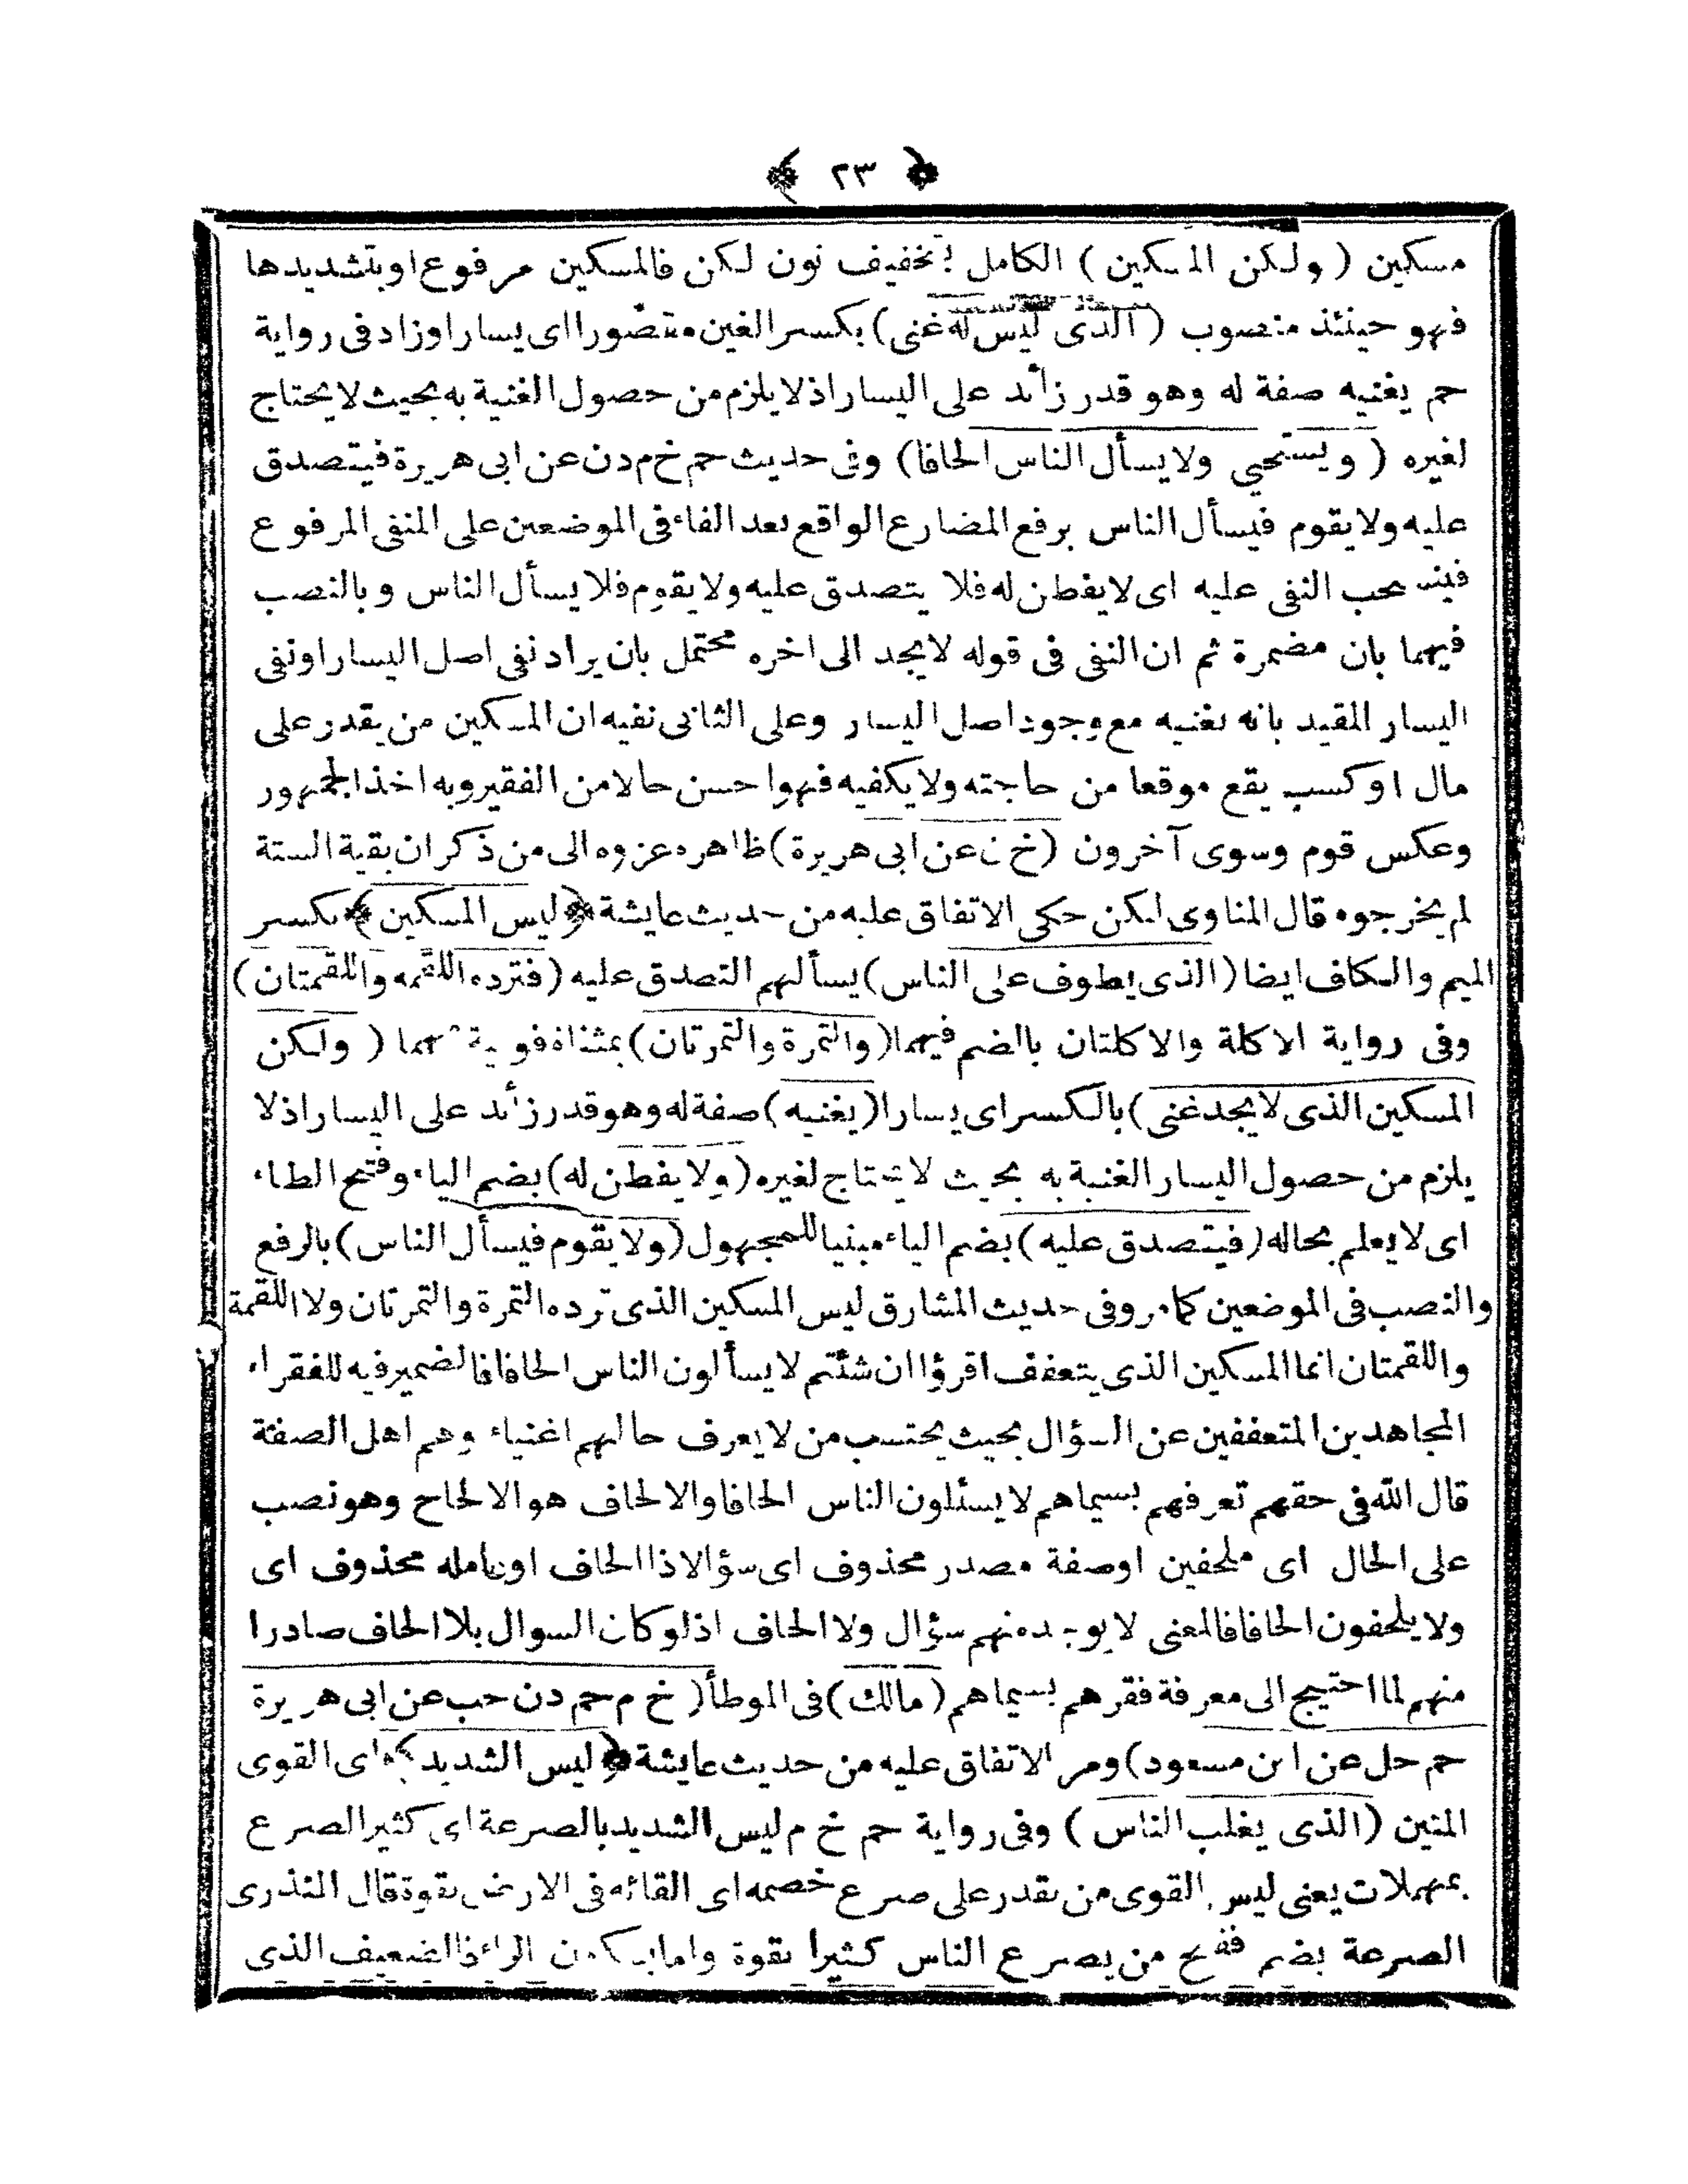 ﴿ ٢٣ ﴾
مسكين ( ولكن المسكين ) الكامل بتخفيف نون لكن فالمسكين مرفوع او بتشديدها
فهو حينئذ منصوب ( الذى ليس له غنى ) بكسر الغين مقصورا اى يسارا وزاد فى رواية
حم يغنيه صفة له وهو قدر زائد على اليسار اذ لا يلزم من حصول الغنية به بحيث لا يحتاج
لغيره ( ويستحيى ولا يسأل الناس الحافا ) وفى حديث حم خ م د ن عن ابى هريرة فيتصدق
عليه ولا يقوم فيسأل الناس برفع المضارع الواقع بعد الفاء فى الموضعين على المنفى المرفوع
فينسحب النفى عليه اى لا يفطن له فلا يتصدق عليه ولا يقوم فلا يسأل الناس وبالنصب
فيهما بان مضمرة ثم ان النفى فى قوله لا يجد الى اخره محتمل بان يراد نفى اصل اليسار او نفى
اليسار المقيد بانه يغنيه مع وجود اصل اليسار وعلى الثانى نفيه ان المسكين من يقدر على
مال او كسب يقع موقعا من حاجته ولا يكفيه فهو احسن حالا من الفقير وبه اخذ الجمهور
وعكس قوم وسوى آخرون ( خ ن عن ابى هريرة ) ظاهره عزوه الى من ذكر ان بقية الستة
لم يخرجوه قال المناوى لكن حكى الاتفاق عليه من حديث عايشة ﴿ ليس المسكين ﴾ بكسر
الميم والكاف ايضا ( الذى يطوف على الناس ) يسألهم التصدق عليه ( فترده اللقمه واللقمتان )
وفى رواية الاكلة والاكلتان بالضم فيهما ( والتمرة والتمرتان ) بمثناة فوقية فيهما ( ولكن
المسكين الذى لا يجد غنى ) بالكسر اى يسارا ( يغنيه ) صفة له وهو قدر زائد على اليسار اذ لا
يلزم من حصول اليسار الغنية به بحيث لا يحتاج لغيره ( ولا يفطن له ) بضم الياء وفتح الطاء
اى لا يعلم بحاله ( فيتصدق عليه ) بضم الياء مبنيا للمجهول ( ولا يقوم فيسأل الناس ) بالرفع
والنصب فى الموضعين كما مر وفى حديث المشارق ليس المسكين الذى ترده التمرة والتمرتان ولا اللقمة
واللقمتان انما المسكين الذى يتعفف اقرؤا ان شئتم لا يسألون الناس الحافا فالضمير فيه للفقراء
المجاهدين المتعففين عن السؤال بحيث يحتسب من لا يعرف حالهم اغنياء وهم اهل الصفة
قال الله فى حقهم تعرفهم بسيماهم لا يسئلون الناس الحافا والالحاف هو الالحاح وهو نصب
على الحال اى ملحفين او صفة مصدر محذوف اى سؤالا ذا الحاف او عامله محذوف اى
ولا يلحفون الحافا فالمعنى لا يوجد منهم سؤال ولا الحاف اذ لو كان السوال بلا الحاف صادرا
منهم لما احتيج الى معرفة فقرهم بسيماهم ( مالك ) فى الموطأ ( خ م حم د ن حب عن ابى هريرة
حم حل عن ابن مسعود ) ومر الاتفاق عليه من حديث عايشة ﴿ ليس الشديد ﴾ اى القوى
المتين ( الذى يغلب الناس ) وفى رواية حم خ م ليس الشديد بالصرعة اى كثير الصرع
بمهملات يعنى ليس القوى من يقدر على صرع خصمه اى القائه فى الارض بقوة قال المنذرى
الصرعة بضم ففتح من يصرع الناس كثيرا بقوة واما بسكون الراء فالضعيف الذى